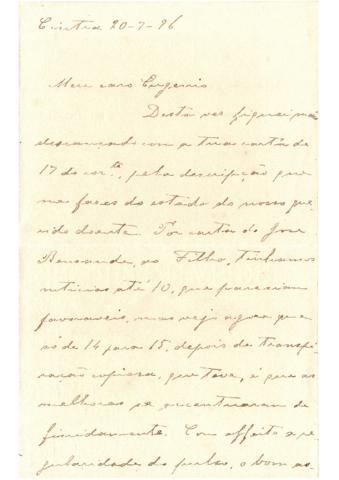 Cintra 20-7-96
Meu caro Eugenio
Desta vez fiquei mais
descançado com a tua carta de
17 do corte., pela descripção que
me fazes do estado do nosso que
rido doente. Por carta do José
Bensaude, ao Filho, tinhamos
noticias até 10, que pareciam
favoraveis, mas vejo agora que
só de 14 para 15, depois da transpi
ração copiosa, que teve, é que as
melhoras se accentuaram de
finidamente. Com effeito a re
gularidade do pulso, o bom as